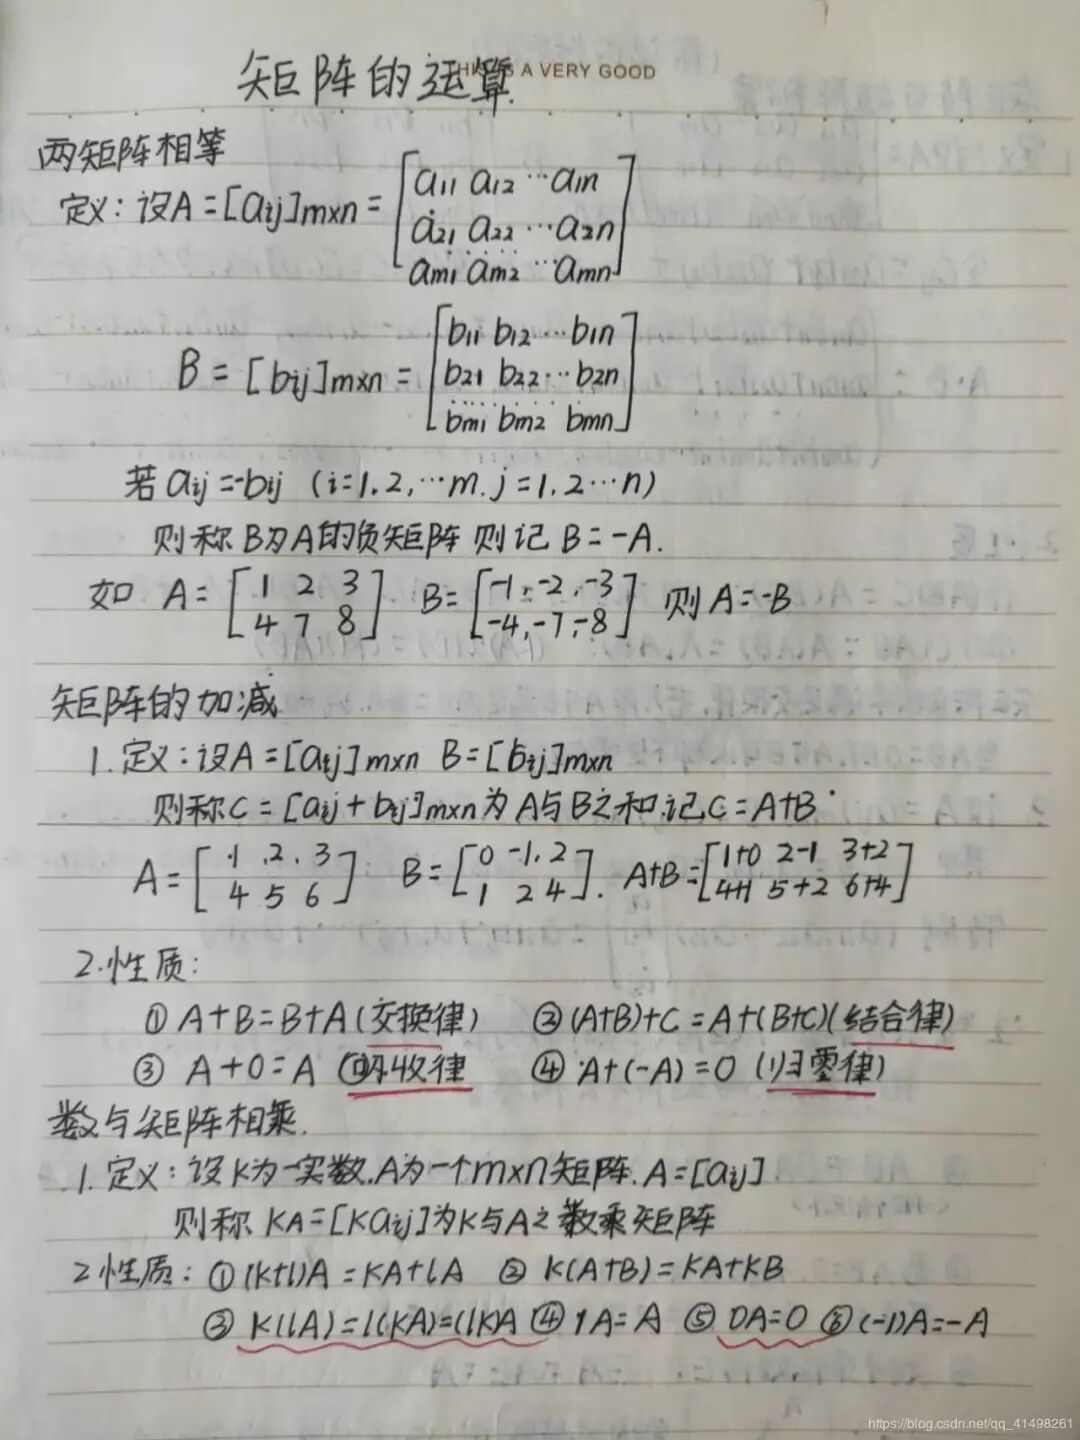 矩阵的运算
THIS IS A VERY GOOD
两矩阵相等
定义：设A=[aij]m×n=[a11 a12 …a1n
a21 a22 …a2n
am1 am2 …amn]
B=[bij]m×n=[b11 b12 …b1n
b21 b22 …b2n
bm1 bm2 bmn]
若aij=-bij (i=1.2,…m.j=1.2…n)
则称B为A的负矩阵 则记B=-A.
如 A=[1 2 3 B=[-1,-2,-3 则A=-B
4 7 8] -4,-7,-8]
矩阵的加减
1.定义：设A=[aij]m×n B=[bij]m×n
则称C=[aij+bij]m×n为A与B之和.记C=A+B
A=[1,2,3 B=[0 -1,2 A+B=[1+0 2-1 3+2
4 5 6] 1 2 4]. 4+1 5+2 6+4]
2.性质：
①A+B=B+A(交换律) ②(A+B)+C=A+(B+C)(结合律)
③ A+0=A (吸收律 ④ A+(-A)=0 (归零律)
数与矩阵相乘.
1.定义：设K为一实数.A为一个m×n矩阵.A=[aij]
则称KA=[Kaij]为K与A之数乘矩阵
2性质：①(K+l)A=KA+lA ② K(A+B)=KA+KB
③ K(lA)=l(KA)=(lK)A ④1A=A ⑤ 0A=0 ⑥(-1)A=-A
https://blog.csdn.net/qq_41498261